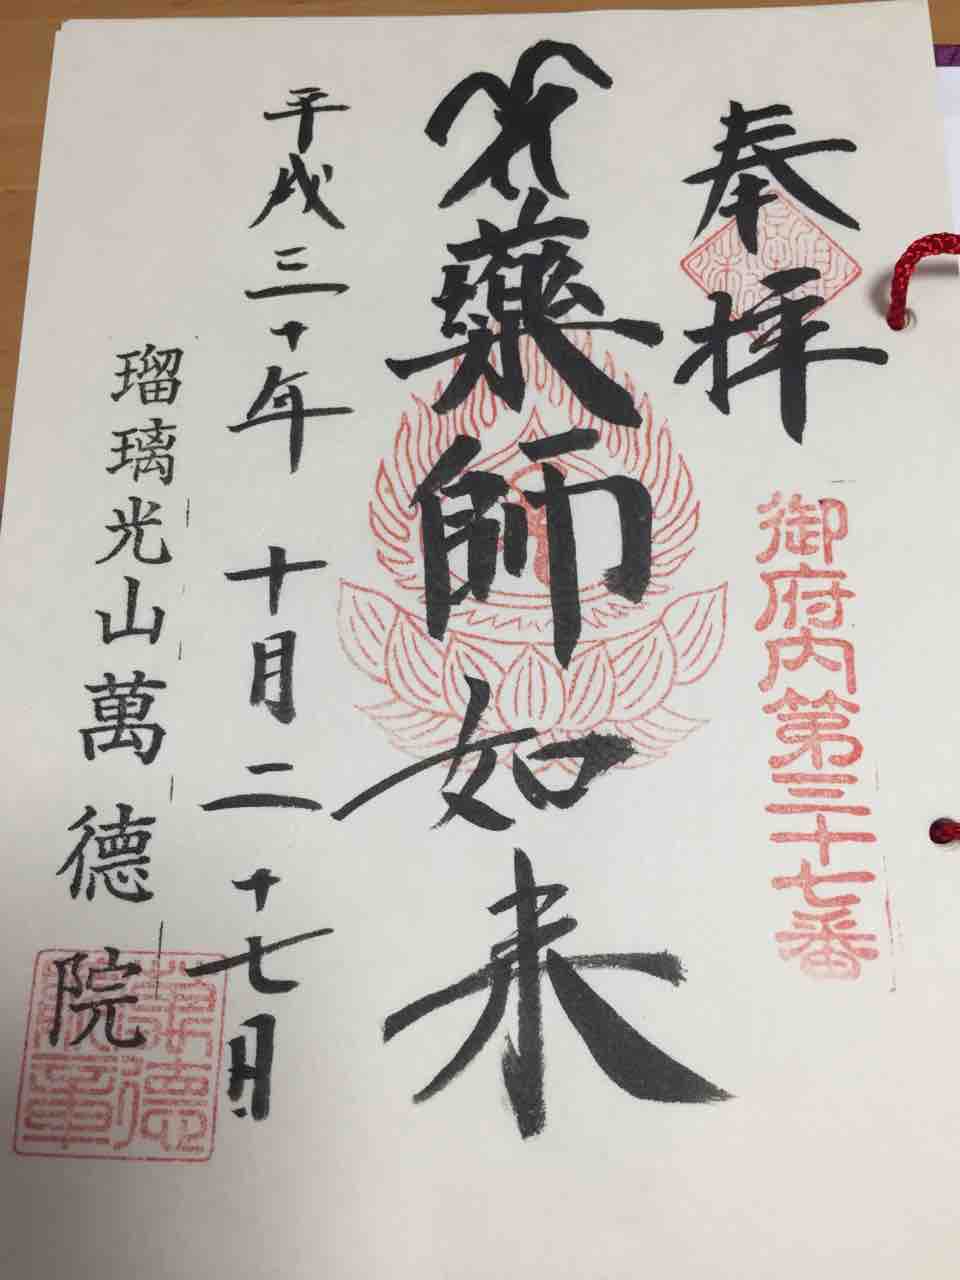 奉拝
御府内第三十七番
藥師如来
平成三十年 十月二十七日
瑠璃光山萬德院